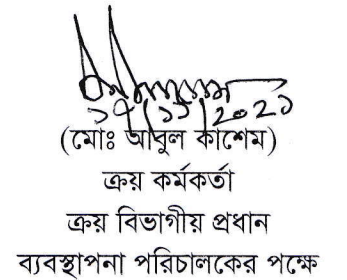 ১৭/১১/২০২১
(মোঃ আবুল কাশেম)
ক্রয় কর্মকর্তা
ক্রয় বিভাগীয় প্রধান
ব্যবস্থাপনা পরিচালকের পক্ষে